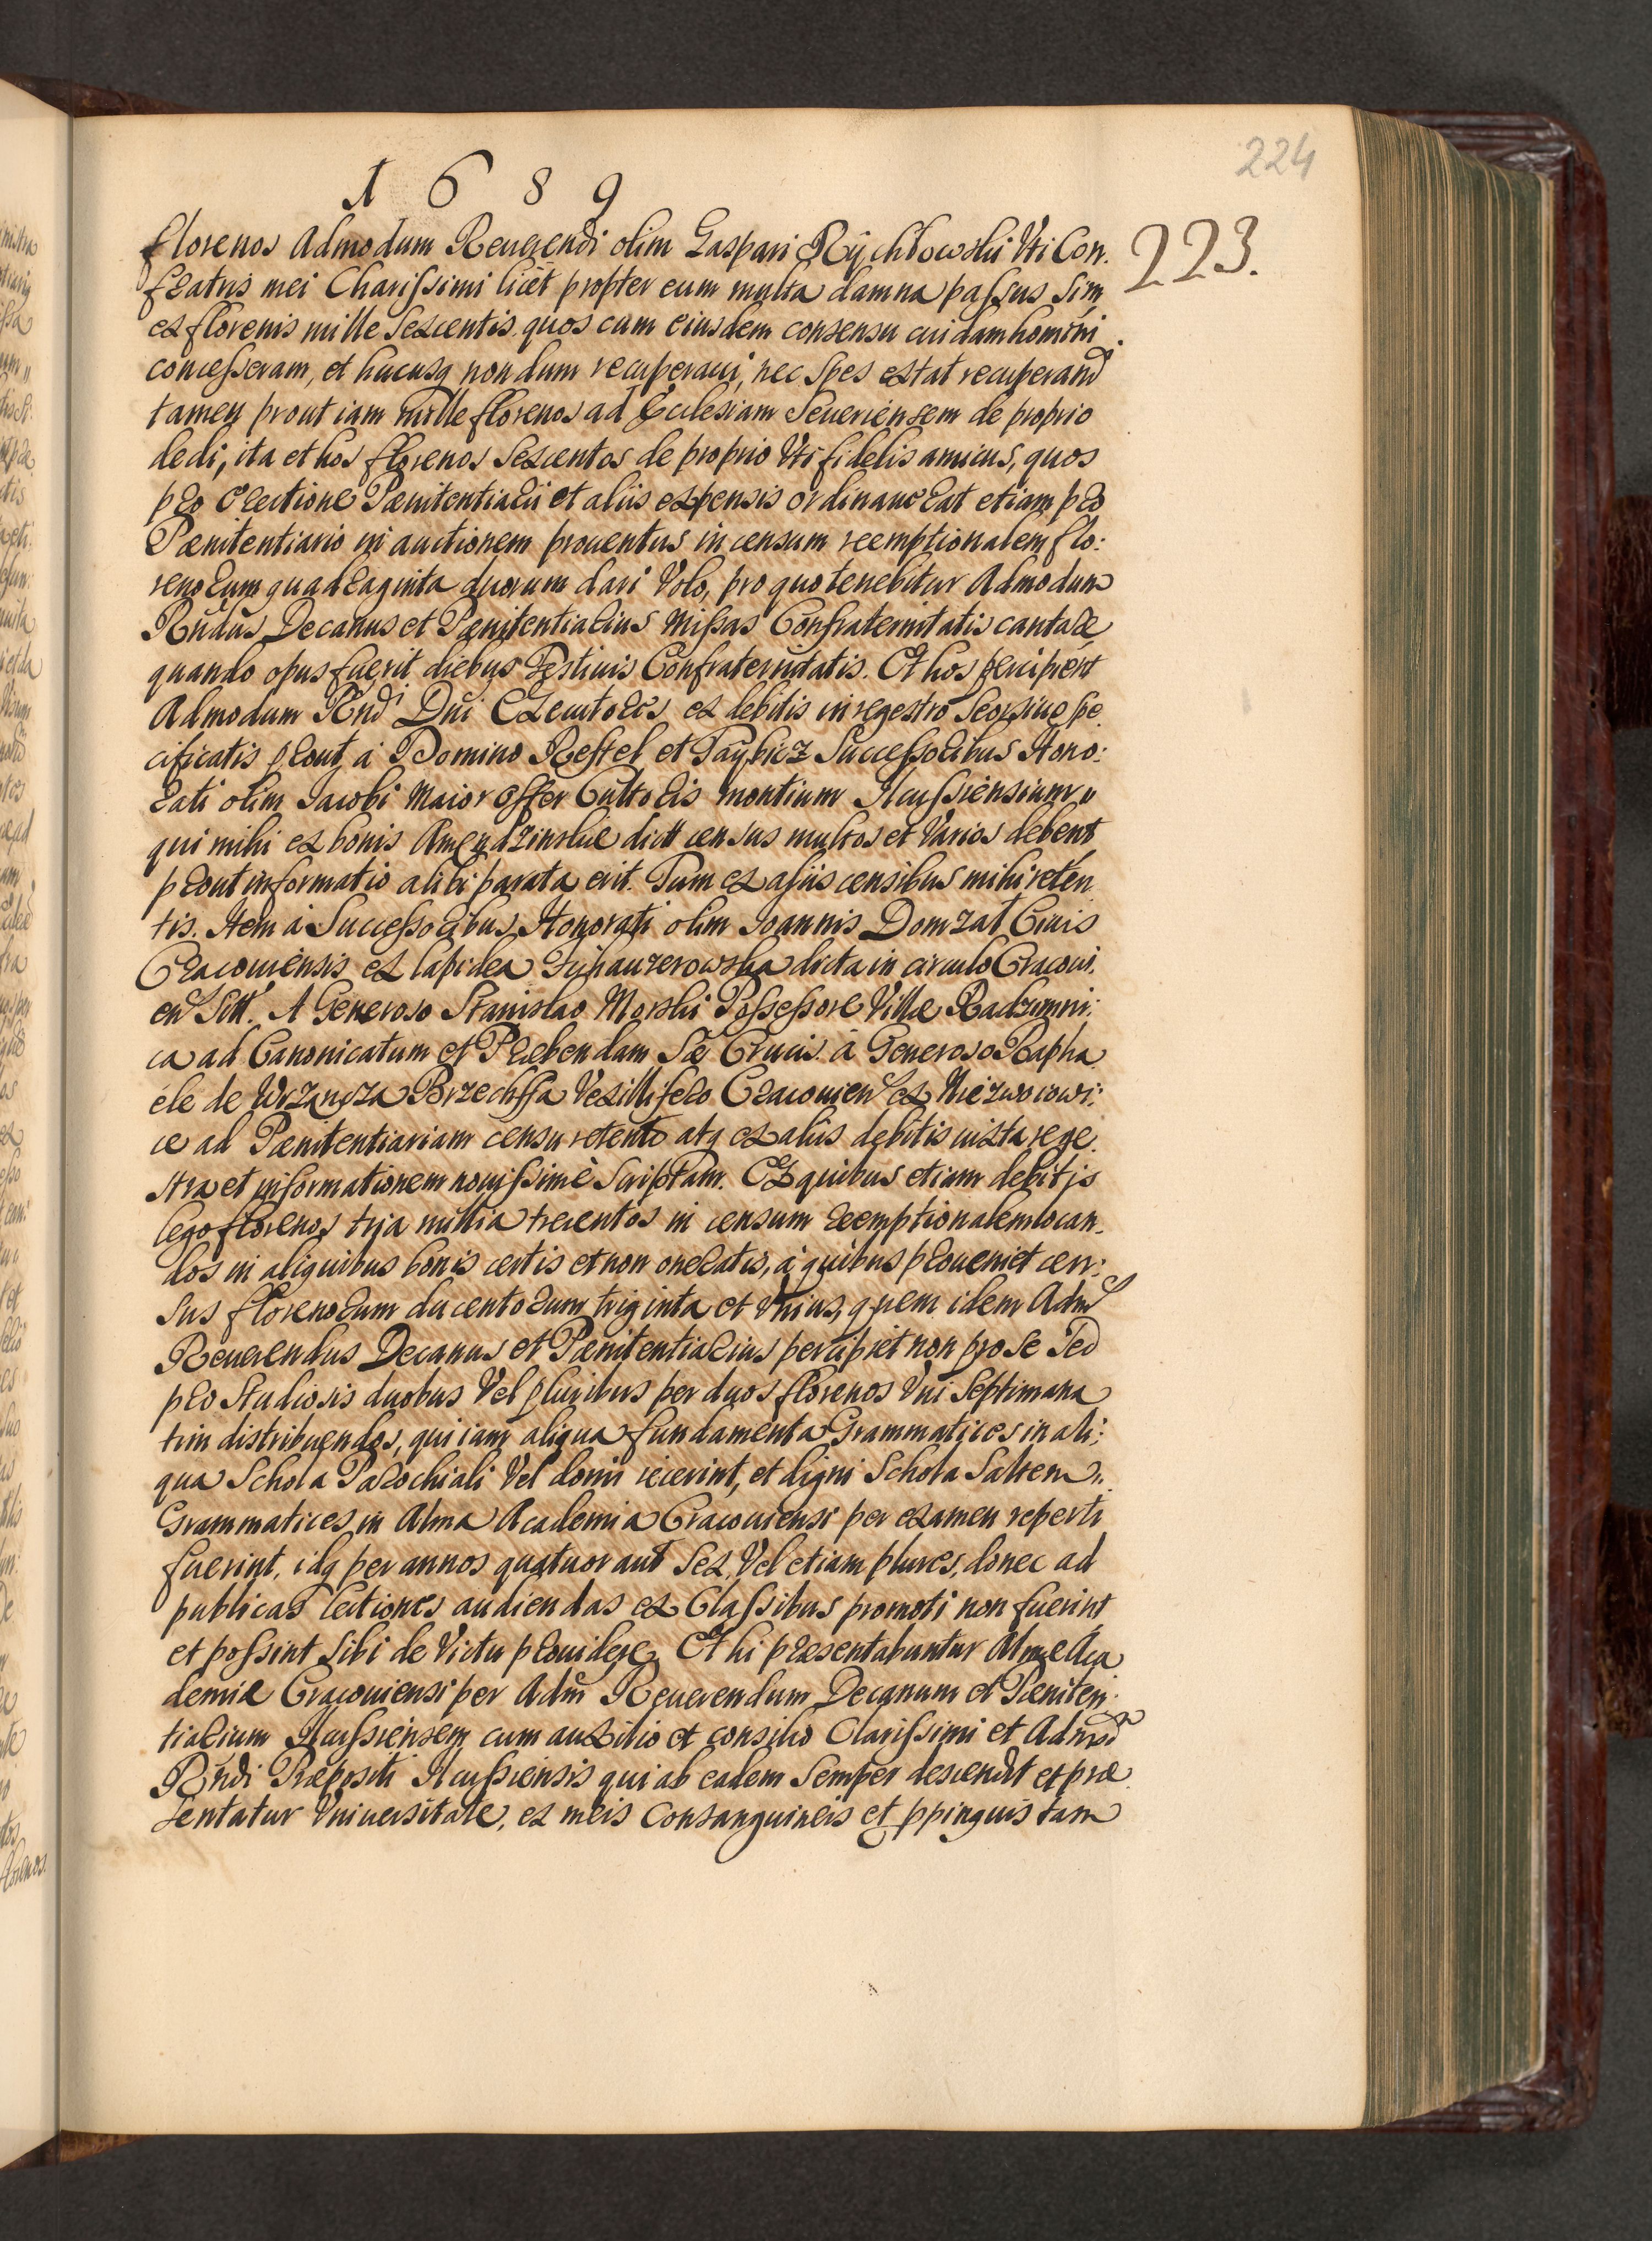 224
1689
223.
florenos Admodum Reuerendi olim Gaspari Rychłowski Vti Con.
fratris mei Charissimi licèt propter eum multa damna passus sim
ex florenis mille sexcentis quos cum eiusdem consensu cuidam homini
concesseram, et hucusq nondum recuperaui, nec spes extat recuperand
tamen prout iam mille florenos ad Ecclesiam Seueriensem de proprio
dedi, ita et hos florenos sexcentos de proprio Vti fidelis amicus, quos
pro erectione Pænitentiarii et aliis expensis ordinauerat etiam pro
Pænitentiario in auctionem prouentus in censum reemptionalem flo:
renorum quadraginta duorum dari Volo, pro quo tenebitur Admodum
Rndus Decanus et Pænitentiarius Missas Confraternitatis cantare
quando opus fuerit diebus Festiuis Confraternitatis. Et hos percipient
Admodum Rndi Dni Executores ex debitis in regestro seorsiue spe
cificatis prout à Domino Restel et Taybicz Successoribus Hono:
rati olim Jacobi Maior offer Cultoris montium Ilcussiensium
qui mihi ex bonis Amendzinskie dict census multos et Varios debent
prout informatio alibi parata erit. Tum ex aliis censibus mihi reten
tis. Item à Successoribus Honorati olim Joannis Domzat Ciuis
Cracouiensis ex lapidea dicta in circulo Cracoui.
en sitt. A Generoso Stanislao Morski Possessore Villæ Radzimni:
ca ad Canonicatum et Præbendam Sæ Crucis. à Generoso Rapha
ele de Wrzancza Brzechffa Vexillifero Cracouien ex Niezwocowi:
ce ad Pænitentiariam censu retento atq ex aliis debitis iuxta rege.
stra et informationem nouissimè scriptam. Ex quibus etiam debitis
lego florenos tria millia trecentos in censum reemptionalem locan.
dos in aliquibus bonis certis et non oneratis, à quibus proueniet cen:
sus florenorum ducentorum triginta et Vnius, quem idem Adm
Reuerendus Decanus et Pænitentiarius percipiet non pro se sed
pro studiosis duobus Vel pluribus per duos florenos Vni septimana
tim distribuendos, qui iam aliqua fundamenta Grammatices in ali:
qua Schola Parochiali Vel domi iecerint, et digni Schola saltem
Grammatices in Alma Academia Cracouiensi per examen reperti
fuerint, idq per annos quatuor aut sex, Vel etiam plures, donec ad
publicas lectiones audiendas ex Classibus promoti non fuerint
et possint sibi de Victu prouidere. Et hi præsentabuntur Almæ Aca
demiæ Cracouiensi per Adm Reuerendum Decanum et Pæniten.
tiarium Ilcussiensem cum auxilio et consilio Clarissimi et Admod
Rndi Præpositi Ilcussiensis qui ab eadem semper descendit et præ
sentatur Vniuersitate, ex meis consanguineis et ppinquis tam